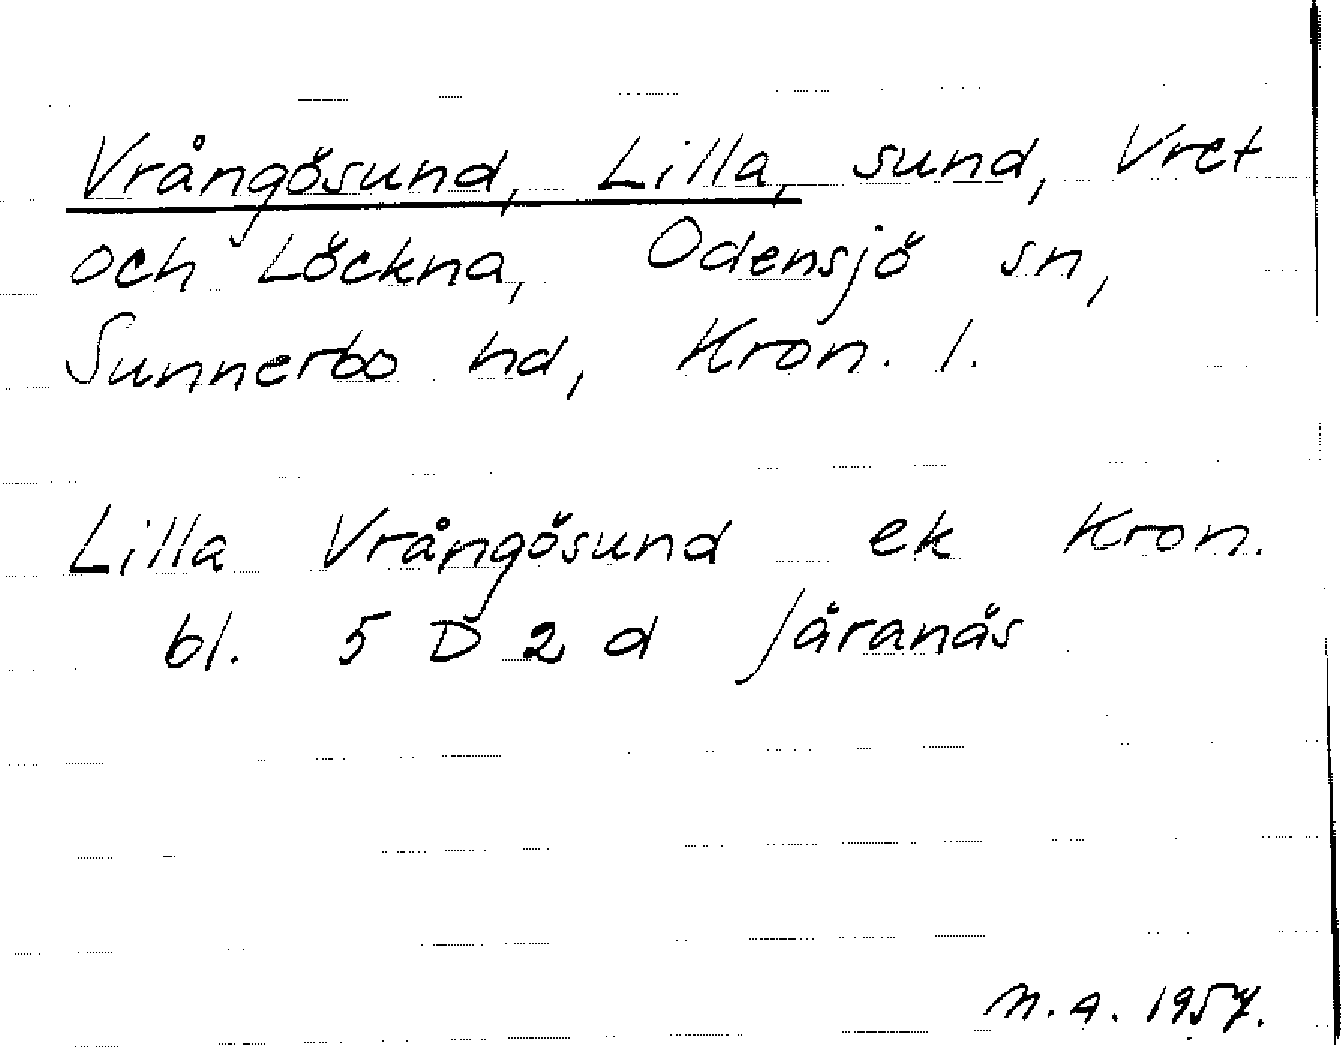 Vrångösund, Lilla, sund, Vret
och Löckna, Odensjö sn,
Sunnerbo hd, Kron. l.
Lilla Vrångösund ek Kron.
bl. 5 D 2 d Järanäs
N.A. 1957.